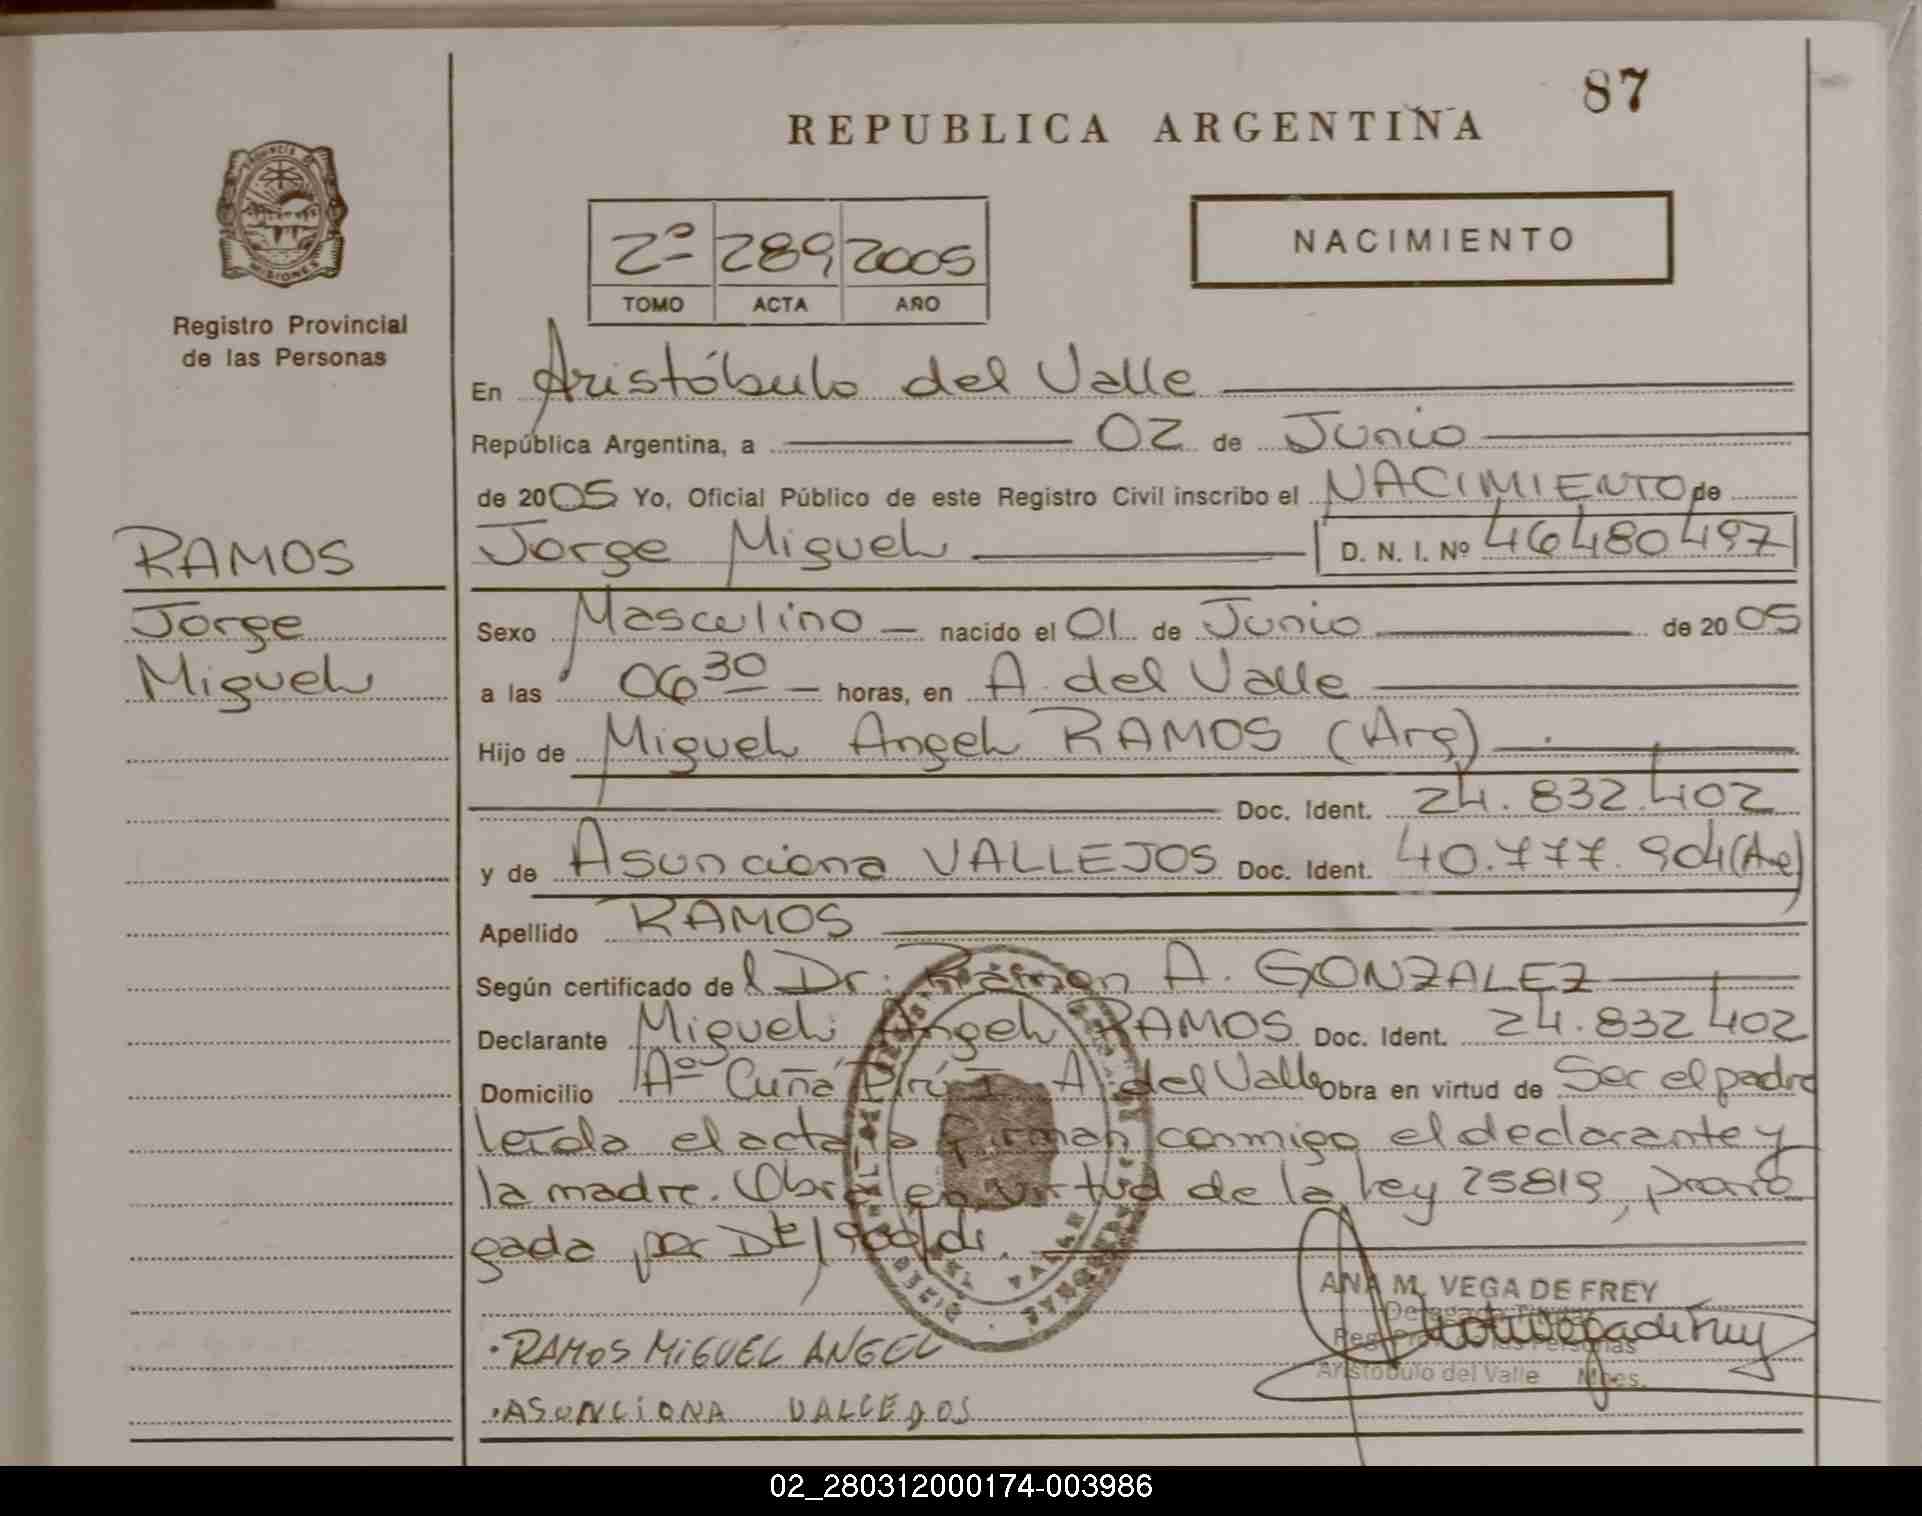 87
REPUBLICA ARGENTINA
PROVINCIA D
MISIONES
Registro Provincial
de las Personas
2º 289 2005
TOMO ACTA AÑO
NACIMIENTO
En Aristóbulo del Valle
República Argentina, a 02 de Junio
de 2005 Yo, Oficial Público de este Registro Civil inscribo el NACIMIENTO de
RAMOS
Jorge Miguel D. N. I. Nº 46480497
Jorge
Miguel
Sexo Masculino nacido el 01 de Junio de 2005
a las 06 30 horas, en A. del Valle
Hijo de Miguel Angel RAMOS (Arg)
Doc. Ident. 24.832.402
y de Asunciona VALLEJOS Doc. Ident. 40.777.904 (Arg)
Apellido RAMOS
Según certificado del Dr. Ramon A. GONZALEZ
Declarante Miguel Angel RAMOS Doc. Ident. 24.832402
Domicilio Aº Cuña Pirú I A. del Valle Obra en virtud de Ser el padre
Leída el acta la firman conmigo el declarante y
la madre. Obra en virtud de la ley 25819, prorro
gada por
ANA M. VEGA DE FREY
Delegada Titular
Reg. Prov. de las Personas
Aristóbulo del Valle Mnes.
RAMOS MIGUEL ANGEL
ASUNCIONA VALLEJOS
02_280312000174-003986